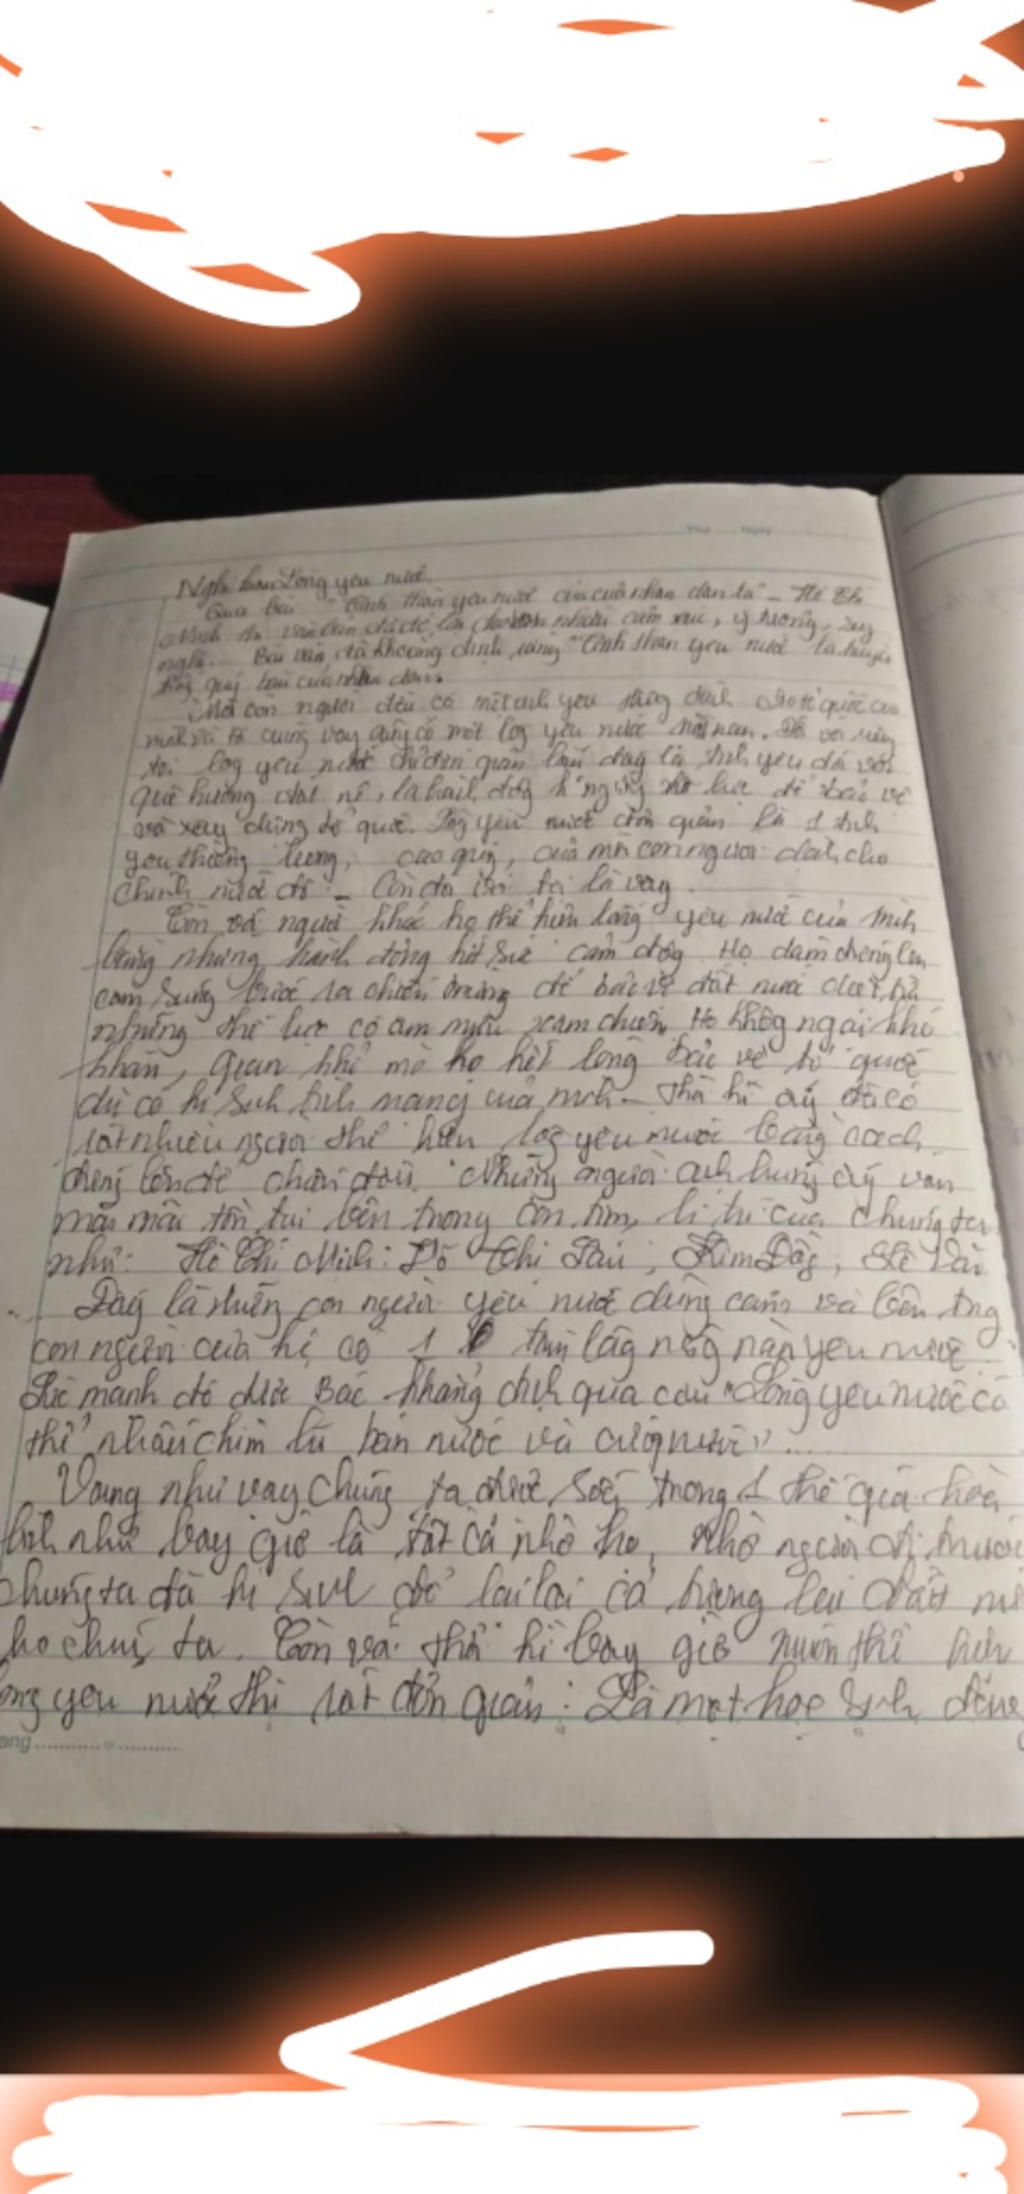 Nghị luận Lòng yêu nước.
Qua bài "Tinh thần yêu nước của nhân dân ta" - Hồ Chí
Minh văn bản đã để lại cho nhiều cảm xúc, ý tưởng, suy
nghĩ... Bài văn đã khẳng định rằng "Tinh thần yêu nước là truyền
thống quý báu của nhân dân.
Mỗi con người đều có một yêu dành cho tổ quốc của
mình và tôi cũng vậy cũng có một lòng yêu nước nồng nàn. Đối với riêng
tôi lòng yêu nước chỉ đơn giản là tình yêu đối với
quê hương đất nc, là hành động k ngừng nỗ lực để bảo vệ
và xây dựng tổ quốc. Lòng yêu nước đơn giản là 1 tình
yêu thương, cao quý, của mỗi con người dành cho
chính nước đó. Còn đối với tôi là vậy.
Còn với người khác họ thể hiện lòng yêu nước của mình
bằng những hành động hết sức cảm động. Họ dám đứng lên
cầm súng bước ra chiến trường để bảo vệ đất nước
những thế lực có âm mưu xâm chiếm. Họ không ngại khó
khăn, gian khổ mà họ hết lòng bảo vệ tổ quốc
dù có hi sinh tính mạng của mình. Thời kì ấy đã có
rất nhiều người thể hiện lòng yêu nước bằng cách
đứng lên để chiến đấu. Những người anh hùng ấy vẫn
mãi mãi tồn tại bên trong con tim, lí trí của chúng ta
như: Hồ Chí Minh; Võ Thị Sáu; Kim Đồng;
Đây là những con người yêu nước dũng cảm và bên trong
con người của họ có 1 tấm lòng nồng nàn yêu nước.
Sức mạnh đó được Bác khẳng định qua câu "Lòng yêu nước có
thể nhấn chìm lũ bán nước và cướp nước"...
Vâng như vậy chúng ta được sống trong 1 thế giới hòa
bình như bây giờ là tất cả nhờ họ, nhờ người đi trước
chúng ta đã hi sinh để lại cả tương lai đất
cho chúng ta. Còn với thời kì bây giờ muốn thể hiện
yêu nước thì rất đơn giản: Là một học sinh